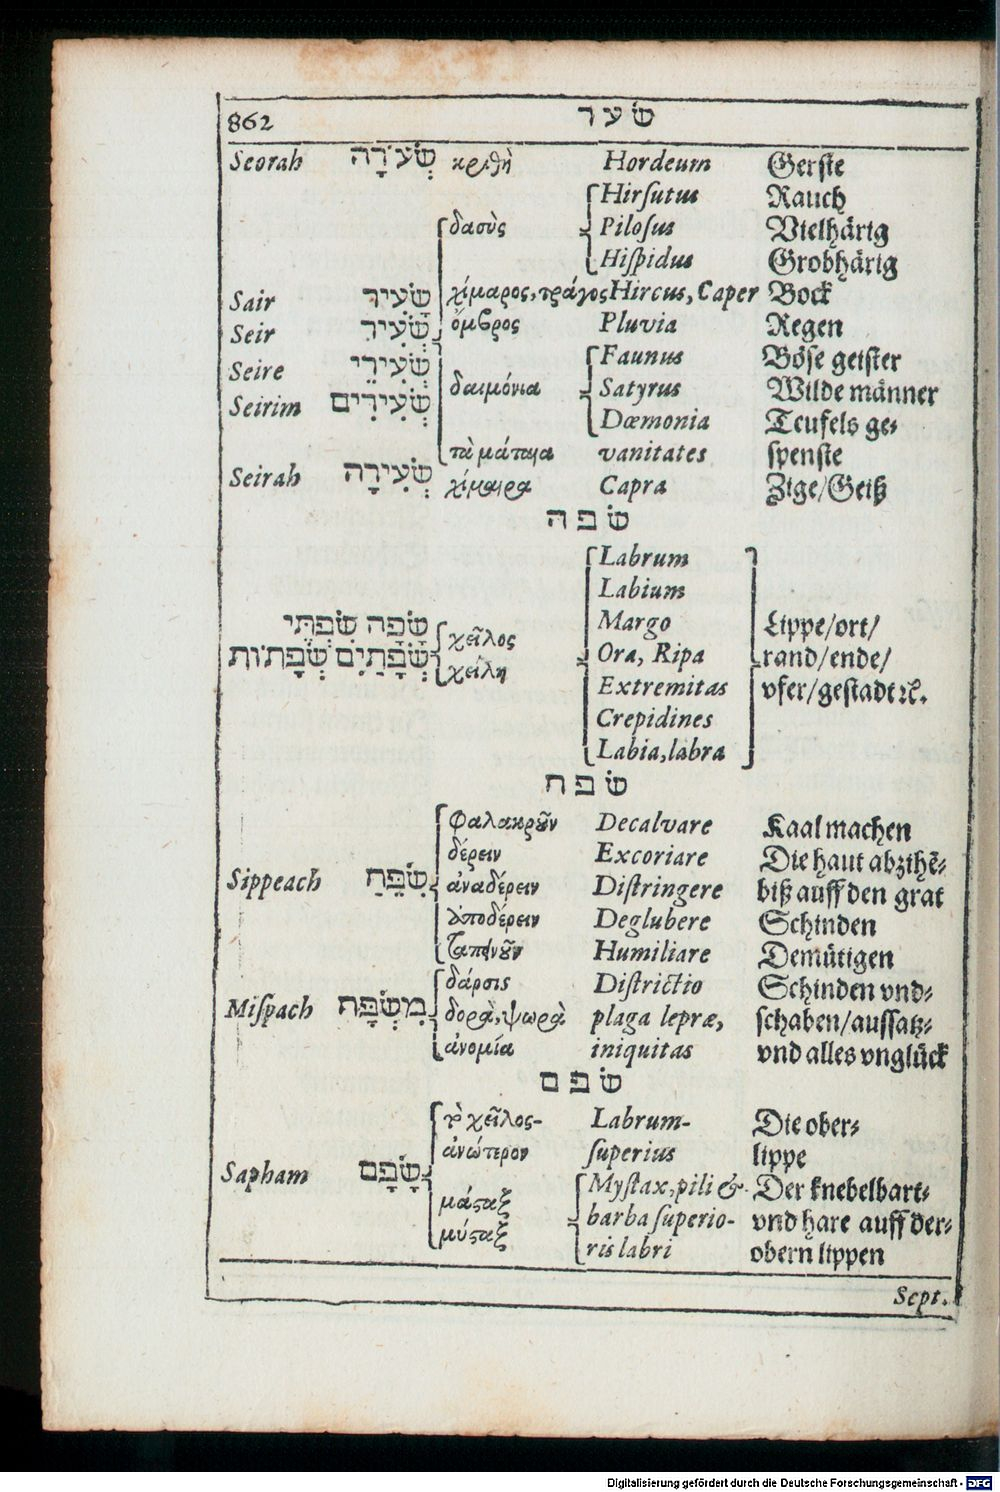 862 שׂער
Seorah שְׂעֹרָה κριθὴ Hordeum Gerste
Hirsutus Rauch
δασὺς Pilosus Vielhärig
Hispidus Grobhärig
Sair שָׂעִיר χίμαρος, τράγος Hircus, Caper Bock
Seir שֵׂעִיר ὄμβρος Pluvia Regen
Seire שְׂעִירֵי Faunus Böse geister
δαιμόνια Satyrus Wilde männer
Seirim שְׂעִירִים Dæmonia Teufels ge-
τὰ μάταια vanitates spenste
Seirah שְׂעִירָה χίμαιρα Capra Zige/Geiß
שׂפה
Labrum
Labium
שָׂפָה שִׂפְתֵי χεῖλος Margo Lippe/ort/
שְׂפָתַיִם שְׂפָתוֹת χείλη Ora, Ripa rand/ende/
Extremitas vfer/gestadt ꝛc.
Crepidines
Labia, labra
שׂפח
φαλακροῦν Decalvare Kaal machen
δέρειν Excoriare Die haut abzihē-
Sippeach שִׂפַּח ἀναδέρειν Distringere biß auff den grat
ἀποδέρειν Deglubere Schinden
ταπεινοῦν Humiliare Demütigen
δάρσις Districtio Schinden vnd-
Mispach מִשְׂפָּח δορὰ, ψωρὰ plaga lepræ, schaben/aussatz-
ἀνομία iniquitas vnd alles vnglück
שׂפם
τὸ χεῖλος- Labrum- Die ober-
ἀνώτερον superius lippe
Sapham שָׂפָם μάσταξ Mystax, pili & Der knebelbart-
μύσταξ barba superio- vnd hare auff der-
ris labri obern lippen
Sept.
Digitalisierung gefördert durch die Deutsche Forschungsgemeinschaft - DFG